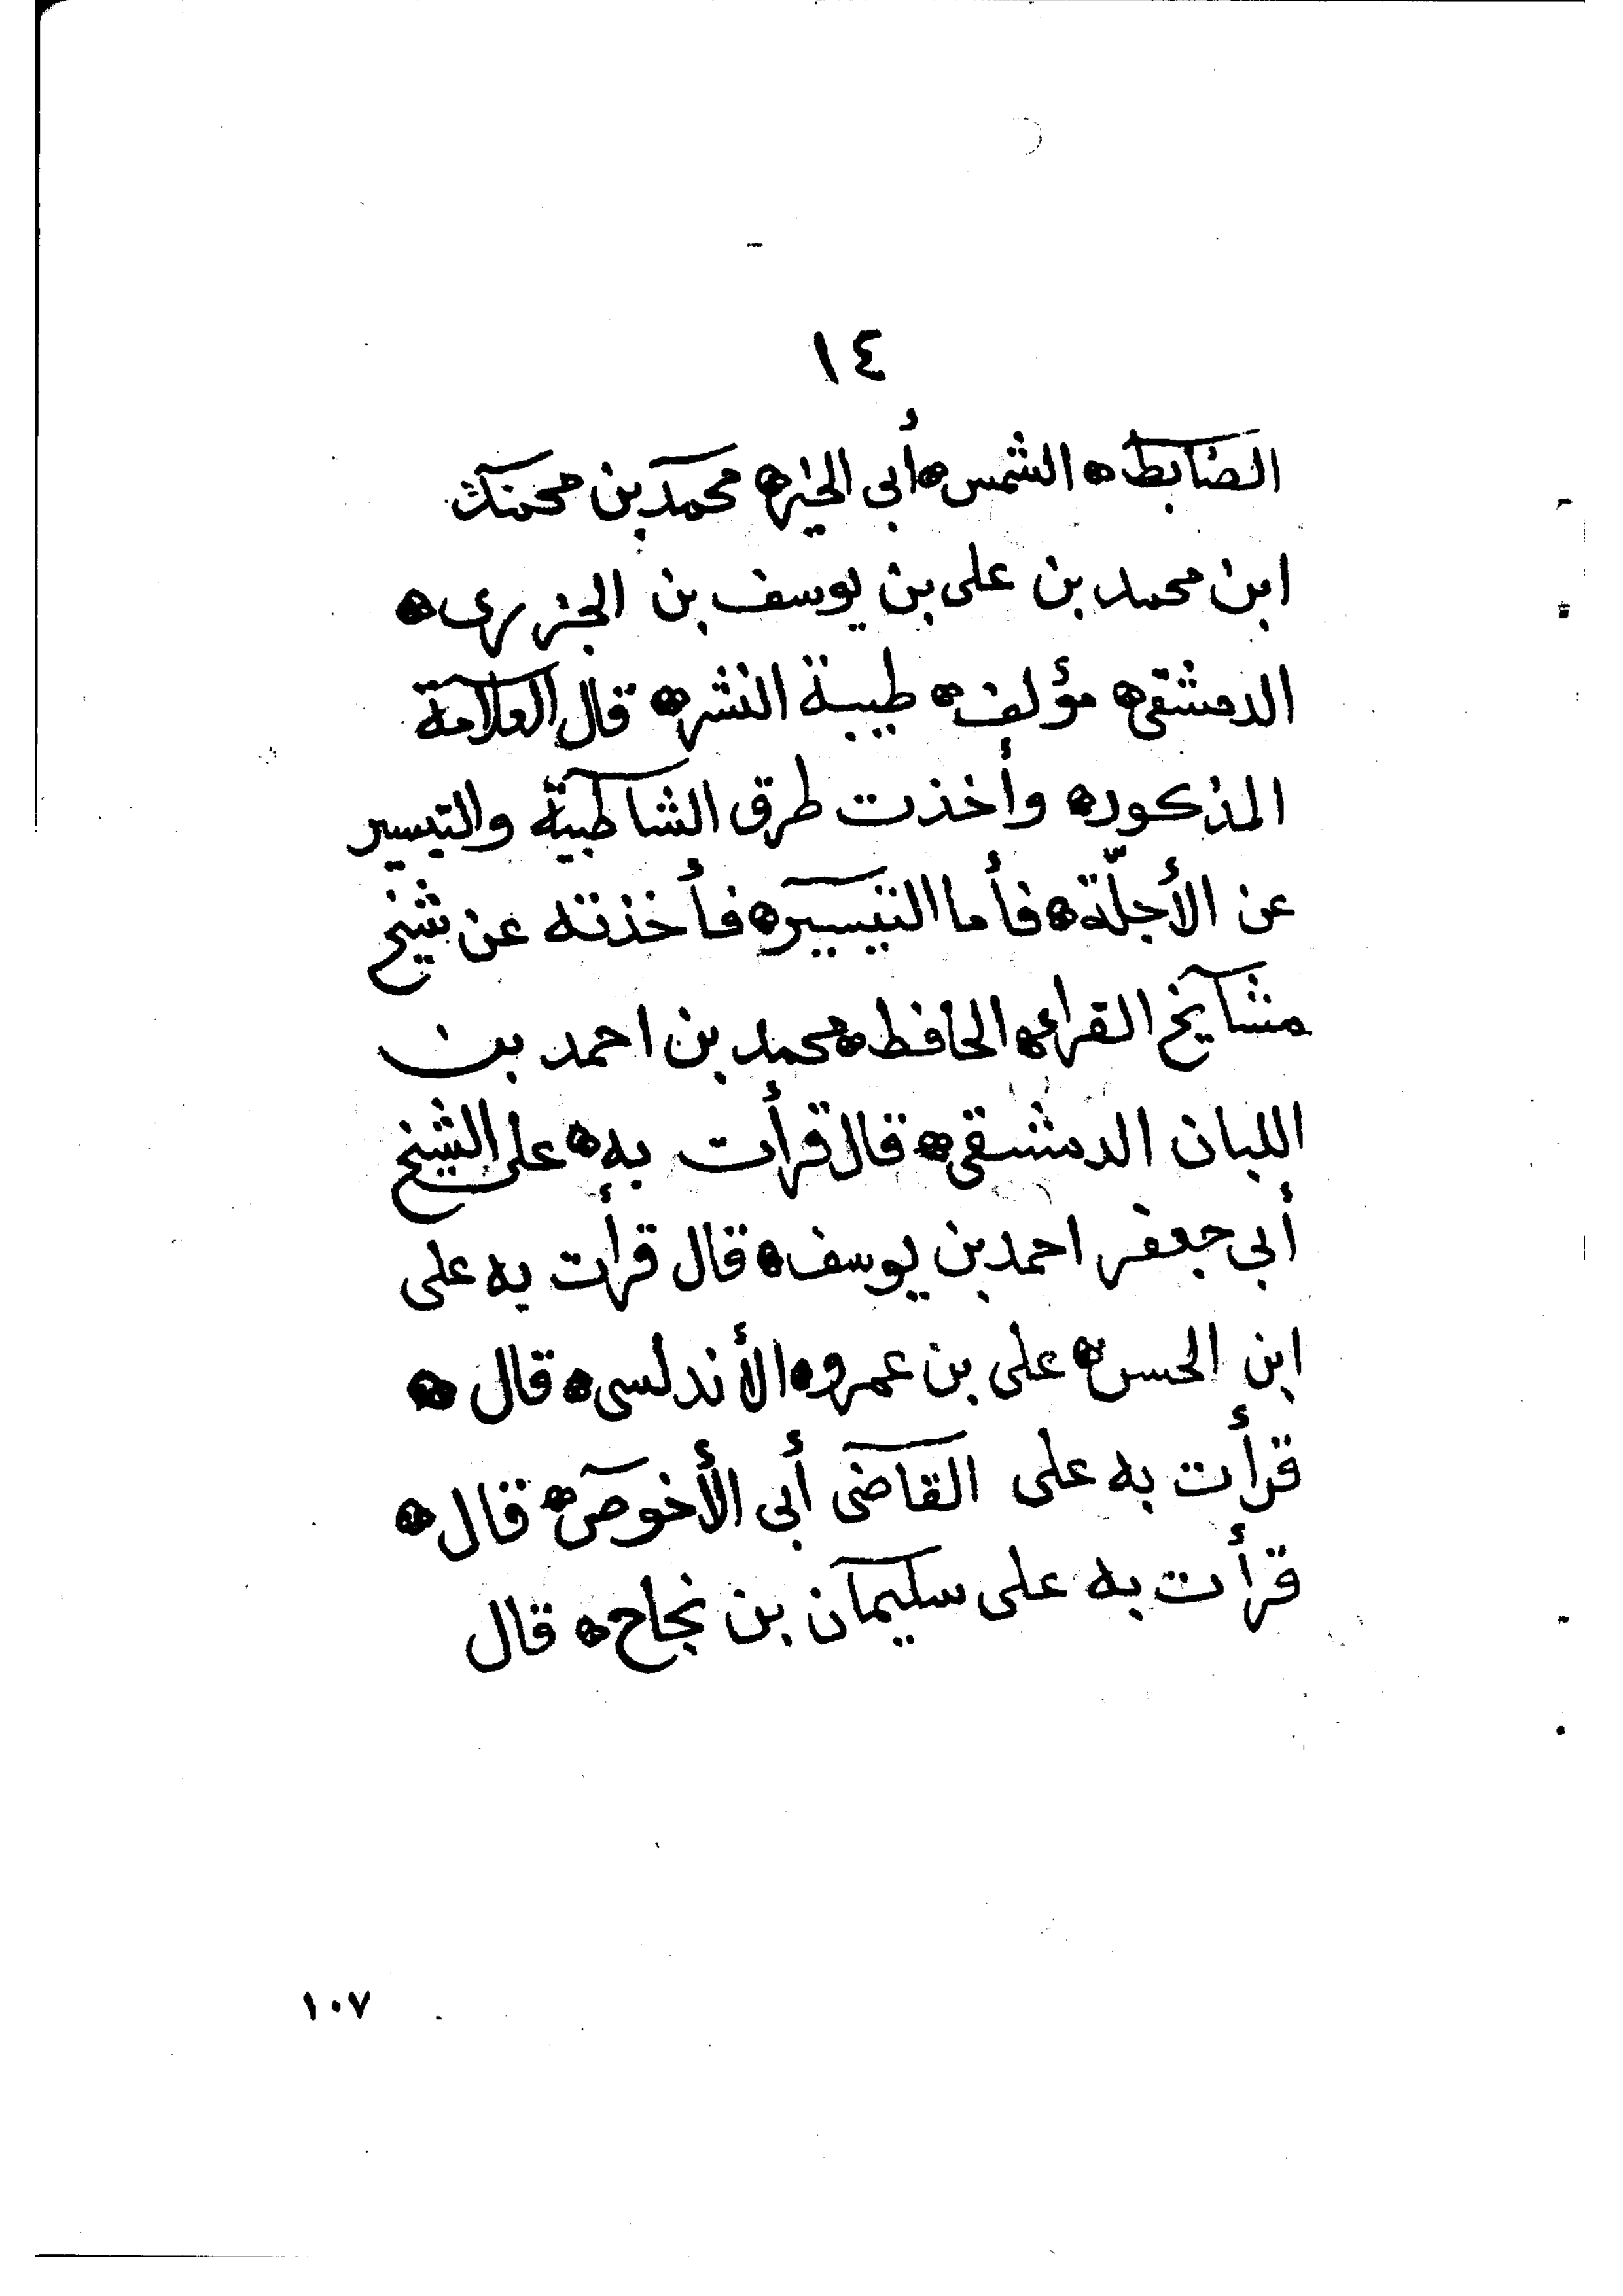 ١٤
الضابط ه الشمس ه أبى الخير ه محمد بن محمد
ابن محمد بن على بن يوسف بن الجزرى ه
الدمشقى ه مؤلف ه طيبة النشر ه قال العلامة
المذكور ه وأخذت طرق الشاطبية والتيسير
عن الأجلّة ه فأما التيسير ه فأخذته عن شيخ
مشايخ القراء ه الحافظ ه محمد بن احمد بن
اللبان الدمشقى ه قال قرأت به ه على الشيخ
أبى جعفر احمد بن يوسف ه قال قرأت به على
ابن الحسن ه على بن عمرو ه الأندلسى ه قال ه
قرأت به على القاضى أبى الأخوص ه قال ه
قرأت به على سليمان بن نجاح ه قال
١٠٧